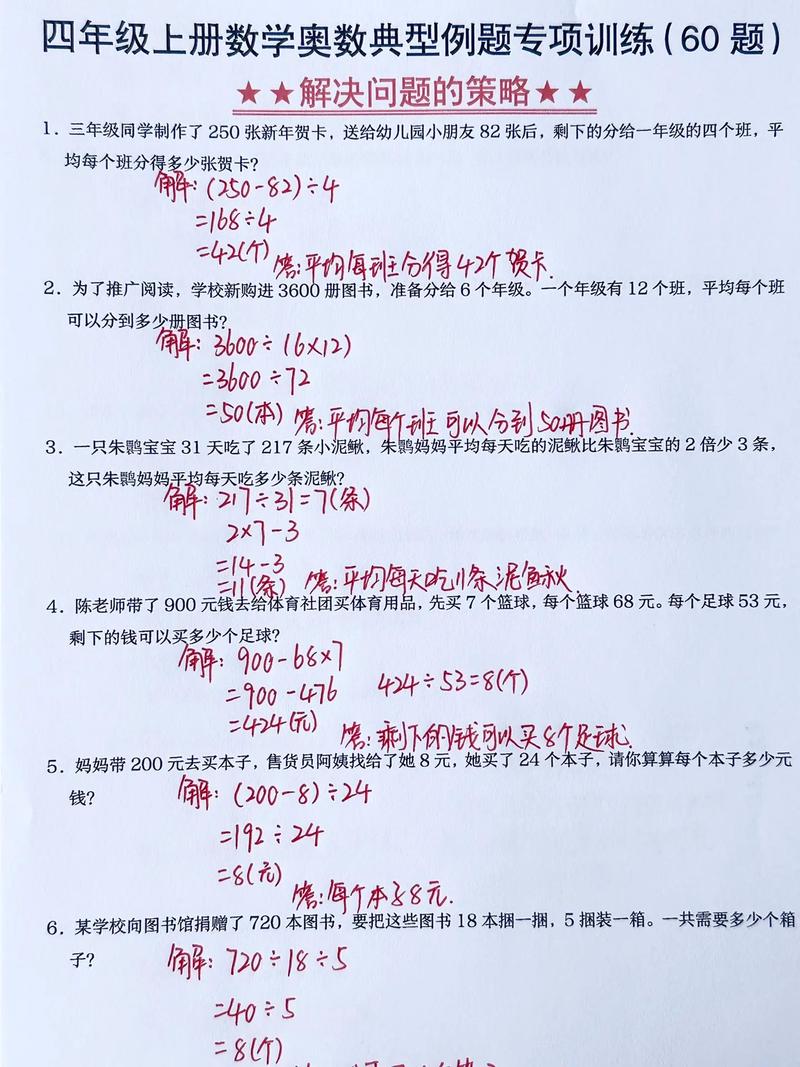 四年级上册数学奥数典型例题专项训练(60 题)
★★解决问题的策略★★
1. 三年级同学制作了 250 张新年贺卡，送给幼儿园小朋友 82 张后，剩下的分给一年级的四个班，平
均每个班分得多少张贺卡?
解: (250-82)÷4
=168÷4
=42(个)
答:平均每班分得42个贺卡.
2. 为了推广阅读，学校新购进 3600 册图书，准备分给 6 个年级。一个年级有 12 个班，平均每个班
可以分到多少册图书?
解: 3600÷(6×12)
=3600÷72
=50(本) 答:平均每个班可以分到50册图书.
3. 一只朱鹮宝宝 31 天吃了 217 条小泥鳅，朱鹮妈妈平均每天吃的泥鳅比朱鹮宝宝的 2 倍少 3 条，
这只朱鹮妈妈平均每天吃多少条泥鳅?
解: 217÷31=7(条)
2×7-3
=14-3
=11(条) 答:平均每天吃11条泥鳅.
4. 陈老师带了 900 元钱去给体育社团买体育用品，先买 7 个篮球，每个篮球 68 元。每个足球 53 元，
剩下的钱可以买多少个足球?
解: 900-68×7
=900-476 424÷53=8(个)
=424(元)
答:剩下的钱可以买8个足球.
5. 妈妈带 200 元去买本子，售货员阿姨找给了她 8 元，她买了 24 个本子，请你算算每个本子多少元
钱?
解: (200-8)÷24
=192÷24
=8(元)
答:每个本子8元.
6. 某学校向图书馆捐赠了 720 本图书，要把这些图书 18 本捆一捆，5 捆装一箱。一共需要多少个箱
子?
解: 720÷18÷5
=40÷5
=8(个)